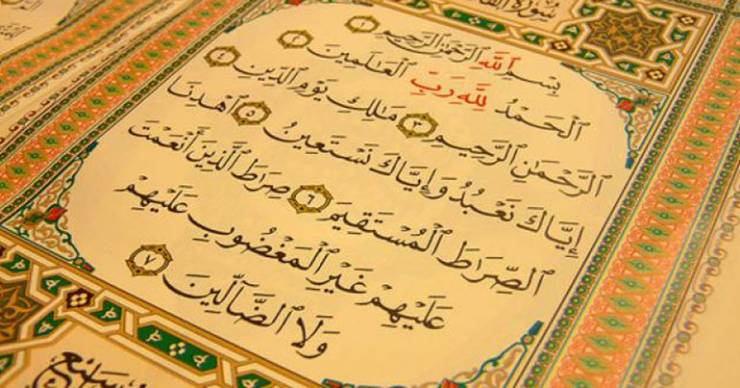 سُورَةُ
بِسْمِ ٱللَّهِ ٱلرَّحْمَٰنِ ٱلرَّحِيمِ ١
ٱلْحَمْدُ لِلَّهِ رَبِّ ٱلْعَٰلَمِينَ ٢
ٱلرَّحْمَٰنِ ٱلرَّحِيمِ ٣ مَٰلِكِ يَوْمِ ٱلدِّينِ ٤
إِيَّاكَ نَعْبُدُ وَإِيَّاكَ نَسْتَعِينُ ٥ ٱهْدِنَا
ٱلصِّرَٰطَ ٱلْمُسْتَقِيمَ ٦ صِرَٰطَ ٱلَّذِينَ أَنْعَمْتَ
عَلَيْهِمْ غَيْرِ ٱلْمَغْضُوبِ عَلَيْهِمْ
وَلَا ٱلضَّآلِّينَ ٧